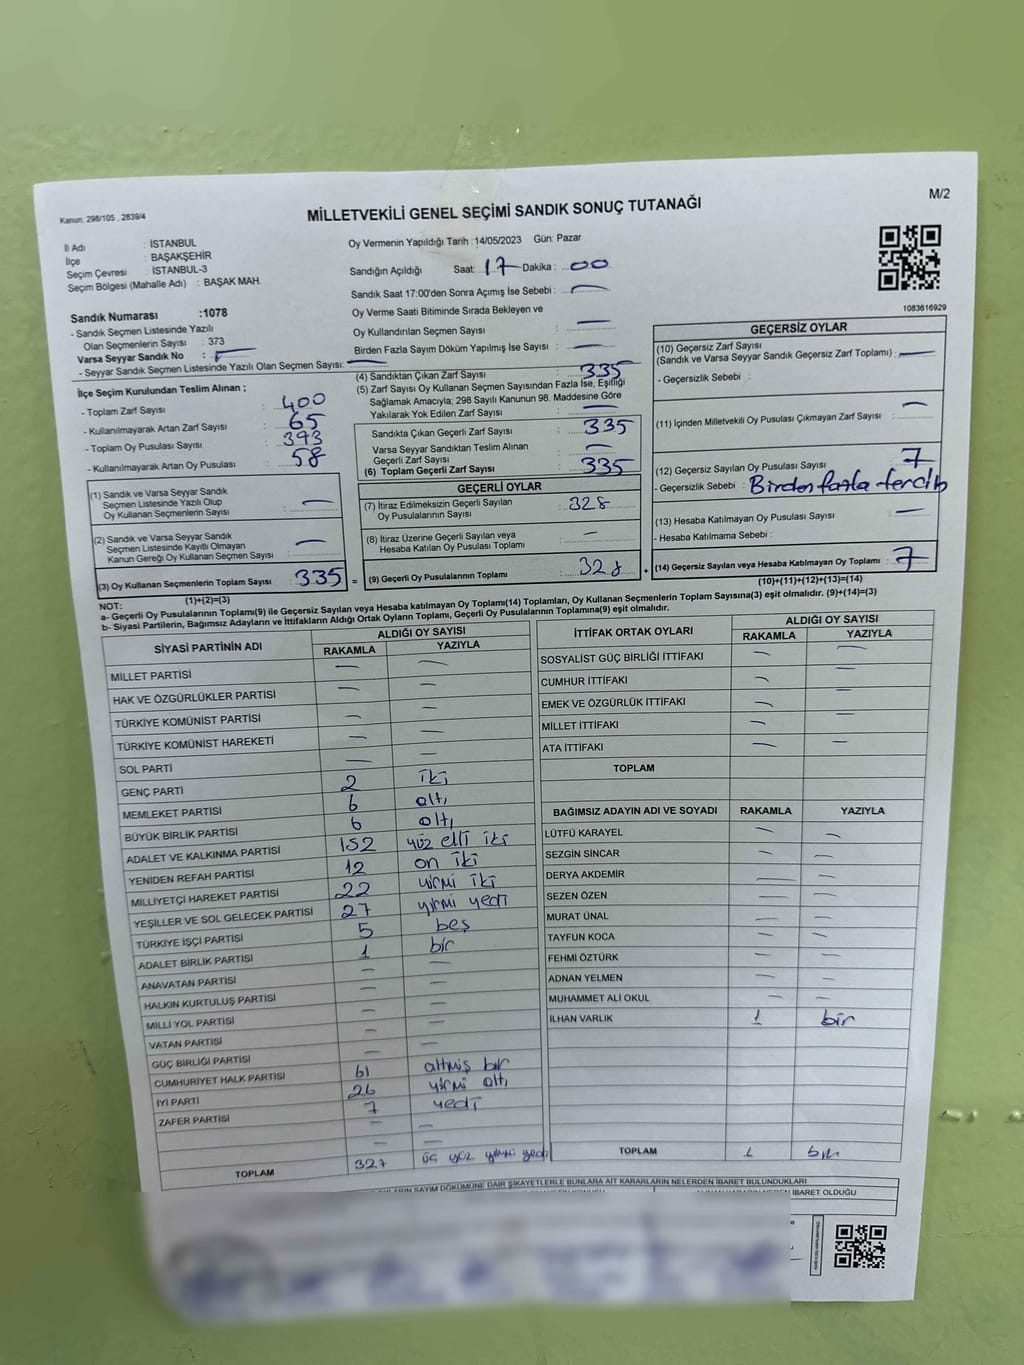 Kanun: 298/105 , 2839/4
MİLLETVEKİLİ GENEL SEÇİMİ SANDIK SONUÇ TUTANAĞI
M/2
İl Adı : İSTANBUL
İlçe : BAŞAKŞEHİR
Seçim Çevresi : İSTANBUL-3
Seçim Bölgesi (Mahalle Adı) : BAŞAK MAH.
Sandık Numarası :1078
- Sandık Seçmen Listesinde Yazılı
Olan Seçmenlerin Sayısı : 373
Varsa Seyyar Sandık No : —
- Seyyar Sandık Seçmen Listesinde Yazılı Olan Seçmen Sayısı: —
Oy Vermenin Yapıldığı Tarih :14/05/2023 Gün: Pazar
Sandığın Açıldığı Saat: 17 Dakika : 00
Sandık Saat 17:00'den Sonra Açımış İse Sebebi : —
Oy Verme Saati Bitiminde Sırada Bekleyen ve
Oy Kullandırılan Seçmen Sayısı : —
Birden Fazla Sayım Döküm Yapılmış İse Sayısı : —
1083616929
İlçe Seçim Kurulundan Teslim Alınan ;
- Toplam Zarf Sayısı : 400
- Kullanılmayarak Artan Zarf Sayısı : 65
- Toplam Oy Pusulası Sayısı : 393
- Kullanılmayarak Artan Oy Pusulası : 58
(1) Sandık ve Varsa Seyyar Sandık
Seçmen Listesinde Yazılı Olup
Oy Kullanan Seçmenlerin Sayısı : —
(2) Sandık ve Varsa Seyyar Sandık
Seçmen Listesinde Kayıtlı Olmayan
Kanun Gereği Oy Kullanan Seçmen Sayısı : —
(3) Oy Kullanan Seçmenlerin Toplam Sayısı : 335 =
(1)+(2)=(3)
(4) Sandıktan Çıkan Zarf Sayısı : 335
(5) Zarf Sayısı Oy Kullanan Seçmen Sayısından Fazla İse, Eşitliği
Sağlamak Amacıyla; 298 Sayılı Kanunun 98. Maddesine Göre
Yakılarak Yok Edilen Zarf Sayısı : —
Sandıkta Çıkan Geçerli Zarf Sayısı : 335
Varsa Seyyar Sandıktan Teslim Alınan
Geçerli Zarf Sayısı : —
(6) Toplam Geçerli Zarf Sayısı : 335
GEÇERLİ OYLAR
(7) İtiraz Edilmeksizin Geçerli Sayılan
Oy Pusulalarının Sayısı : 328
(8) İtiraz Üzerine Geçerli Sayılan veya
Hesaba Katılan Oy Pusulaları Toplamı : —
(9) Geçerli Oy Pusulalarının Toplamı : 328 +
GEÇERSİZ OYLAR
(10) Geçersiz Zarf Sayısı
(Sandık ve Varsa Seyyar Sandık Geçersiz Zarf Toplamı) : —
- Geçersizlik Sebebi :
(11) İçinden Milletvekili Oy Pusulası Çıkmayan Zarf Sayısı : —
(12) Geçersiz Sayılan Oy Pusulası Sayısı : 7
- Geçersizlik Sebebi : Birden fazla tercih
(13) Hesaba Katılmayan Oy Pusulası Sayısı : —
- Hesaba Katılmama Sebebi :
(14) Geçersiz Sayılan veya Hesaba Katılmayan Oy Toplamı : 7
(10)+(11)+(12)+(13)=(14)
NOT:
a- Geçerli Oy Pusulaların Toplamı(9) ile Geçersiz Sayılan veya Hesaba katılmayan Oy Toplamı(14) Toplamları, Oy Kullanan Seçmenlerin Toplam Sayısına(3) eşit olmalıdır. (9)+(14)=(3)
b- Siyasi Partilerin, Bağımsız Adayların ve İttifakların Aldığı Ortak Oyların Toplamı, Geçerli Oy Pusulalarının Toplamına(9) eşit olmalıdır.
SİYASİ PARTİNİN ADI ALDIĞI OY SAYISI
RAKAMLA YAZIYLA
MİLLET PARTİSİ — —
HAK VE ÖZGÜRLÜKLER PARTİSİ — —
TÜRKİYE KOMÜNİST PARTİSİ — —
TÜRKİYE KOMÜNİST HAREKETİ — —
SOL PARTİ — —
GENÇ PARTİ 2 iki
MEMLEKET PARTİSİ 6 altı
BÜYÜK BİRLİK PARTİSİ 6 altı
ADALET VE KALKINMA PARTİSİ 152 yüz elli iki
YENİDEN REFAH PARTİSİ 12 on iki
MİLLİYETÇİ HAREKET PARTİSİ 22 yirmi iki
YEŞİLLER VE SOL GELECEK PARTİSİ 27 yirmi yedi
TÜRKİYE İŞÇİ PARTİSİ 5 beş
ADALET BİRLİK PARTİSİ 1 bir
ANAVATAN PARTİSİ — —
HALKIN KURTULUŞ PARTİSİ — —
MİLLİ YOL PARTİSİ — —
VATAN PARTİSİ — —
GÜÇ BİRLİĞİ PARTİSİ — —
CUMHURİYET HALK PARTİSİ 61 altmış bir
İYİ PARTİ 26 yirmi altı
ZAFER PARTİSİ 7 yedi
TOPLAM 327 üç yüz yirmi yedi
İTTİFAK ORTAK OYLARI ALDIĞI OY SAYISI
RAKAMLA YAZIYLA
SOSYALİST GÜÇ BİRLİĞİ İTTİFAKI — —
CUMHUR İTTİFAKI — —
EMEK VE ÖZGÜRLÜK İTTİFAKI — —
MİLLET İTTİFAKI — —
ATA İTTİFAKI — —
TOPLAM
BAĞIMSIZ ADAYIN ADI VE SOYADI RAKAMLA YAZIYLA
LÜTFÜ KARAYEL — —
SEZGİN SİNCAR — —
DERYA AKDEMİR — —
SEZEN ÖZEN — —
MURAT ÜNAL — —
TAYFUN KOCA — —
FEHMİ ÖZTÜRK — —
ADNAN YELMEN — —
MUHAMMET ALİ OKUL — —
İLHAN VARLIK 1 bir
TOPLAM 1 bir
SAYIM DÖKÜMÜNE DAİR ŞİKAYETLERLE BUNLARA AİT KARARLARIN NELERDEN İBARET BULUNDUKLARI
İBARET OLDUĞU